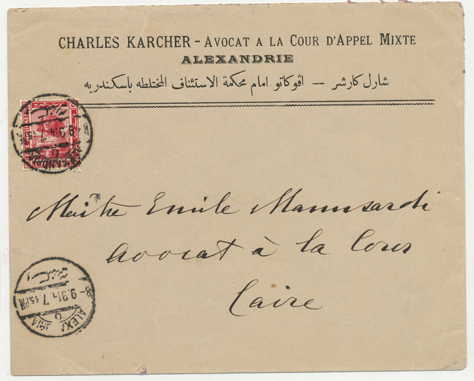 CHARLES KARCHER - AVOCAT A LA COUR D'APPEL MIXTE
ALEXANDRIE
شارل كارشر — اڤوكاتو امام محكمة الاستئناف المختلطه باسكندريه
ALEXANDRIA
Maître Emile Manusardi
Avocat à la Cour
Caire
-9.9.14 7.15PM
ALEX